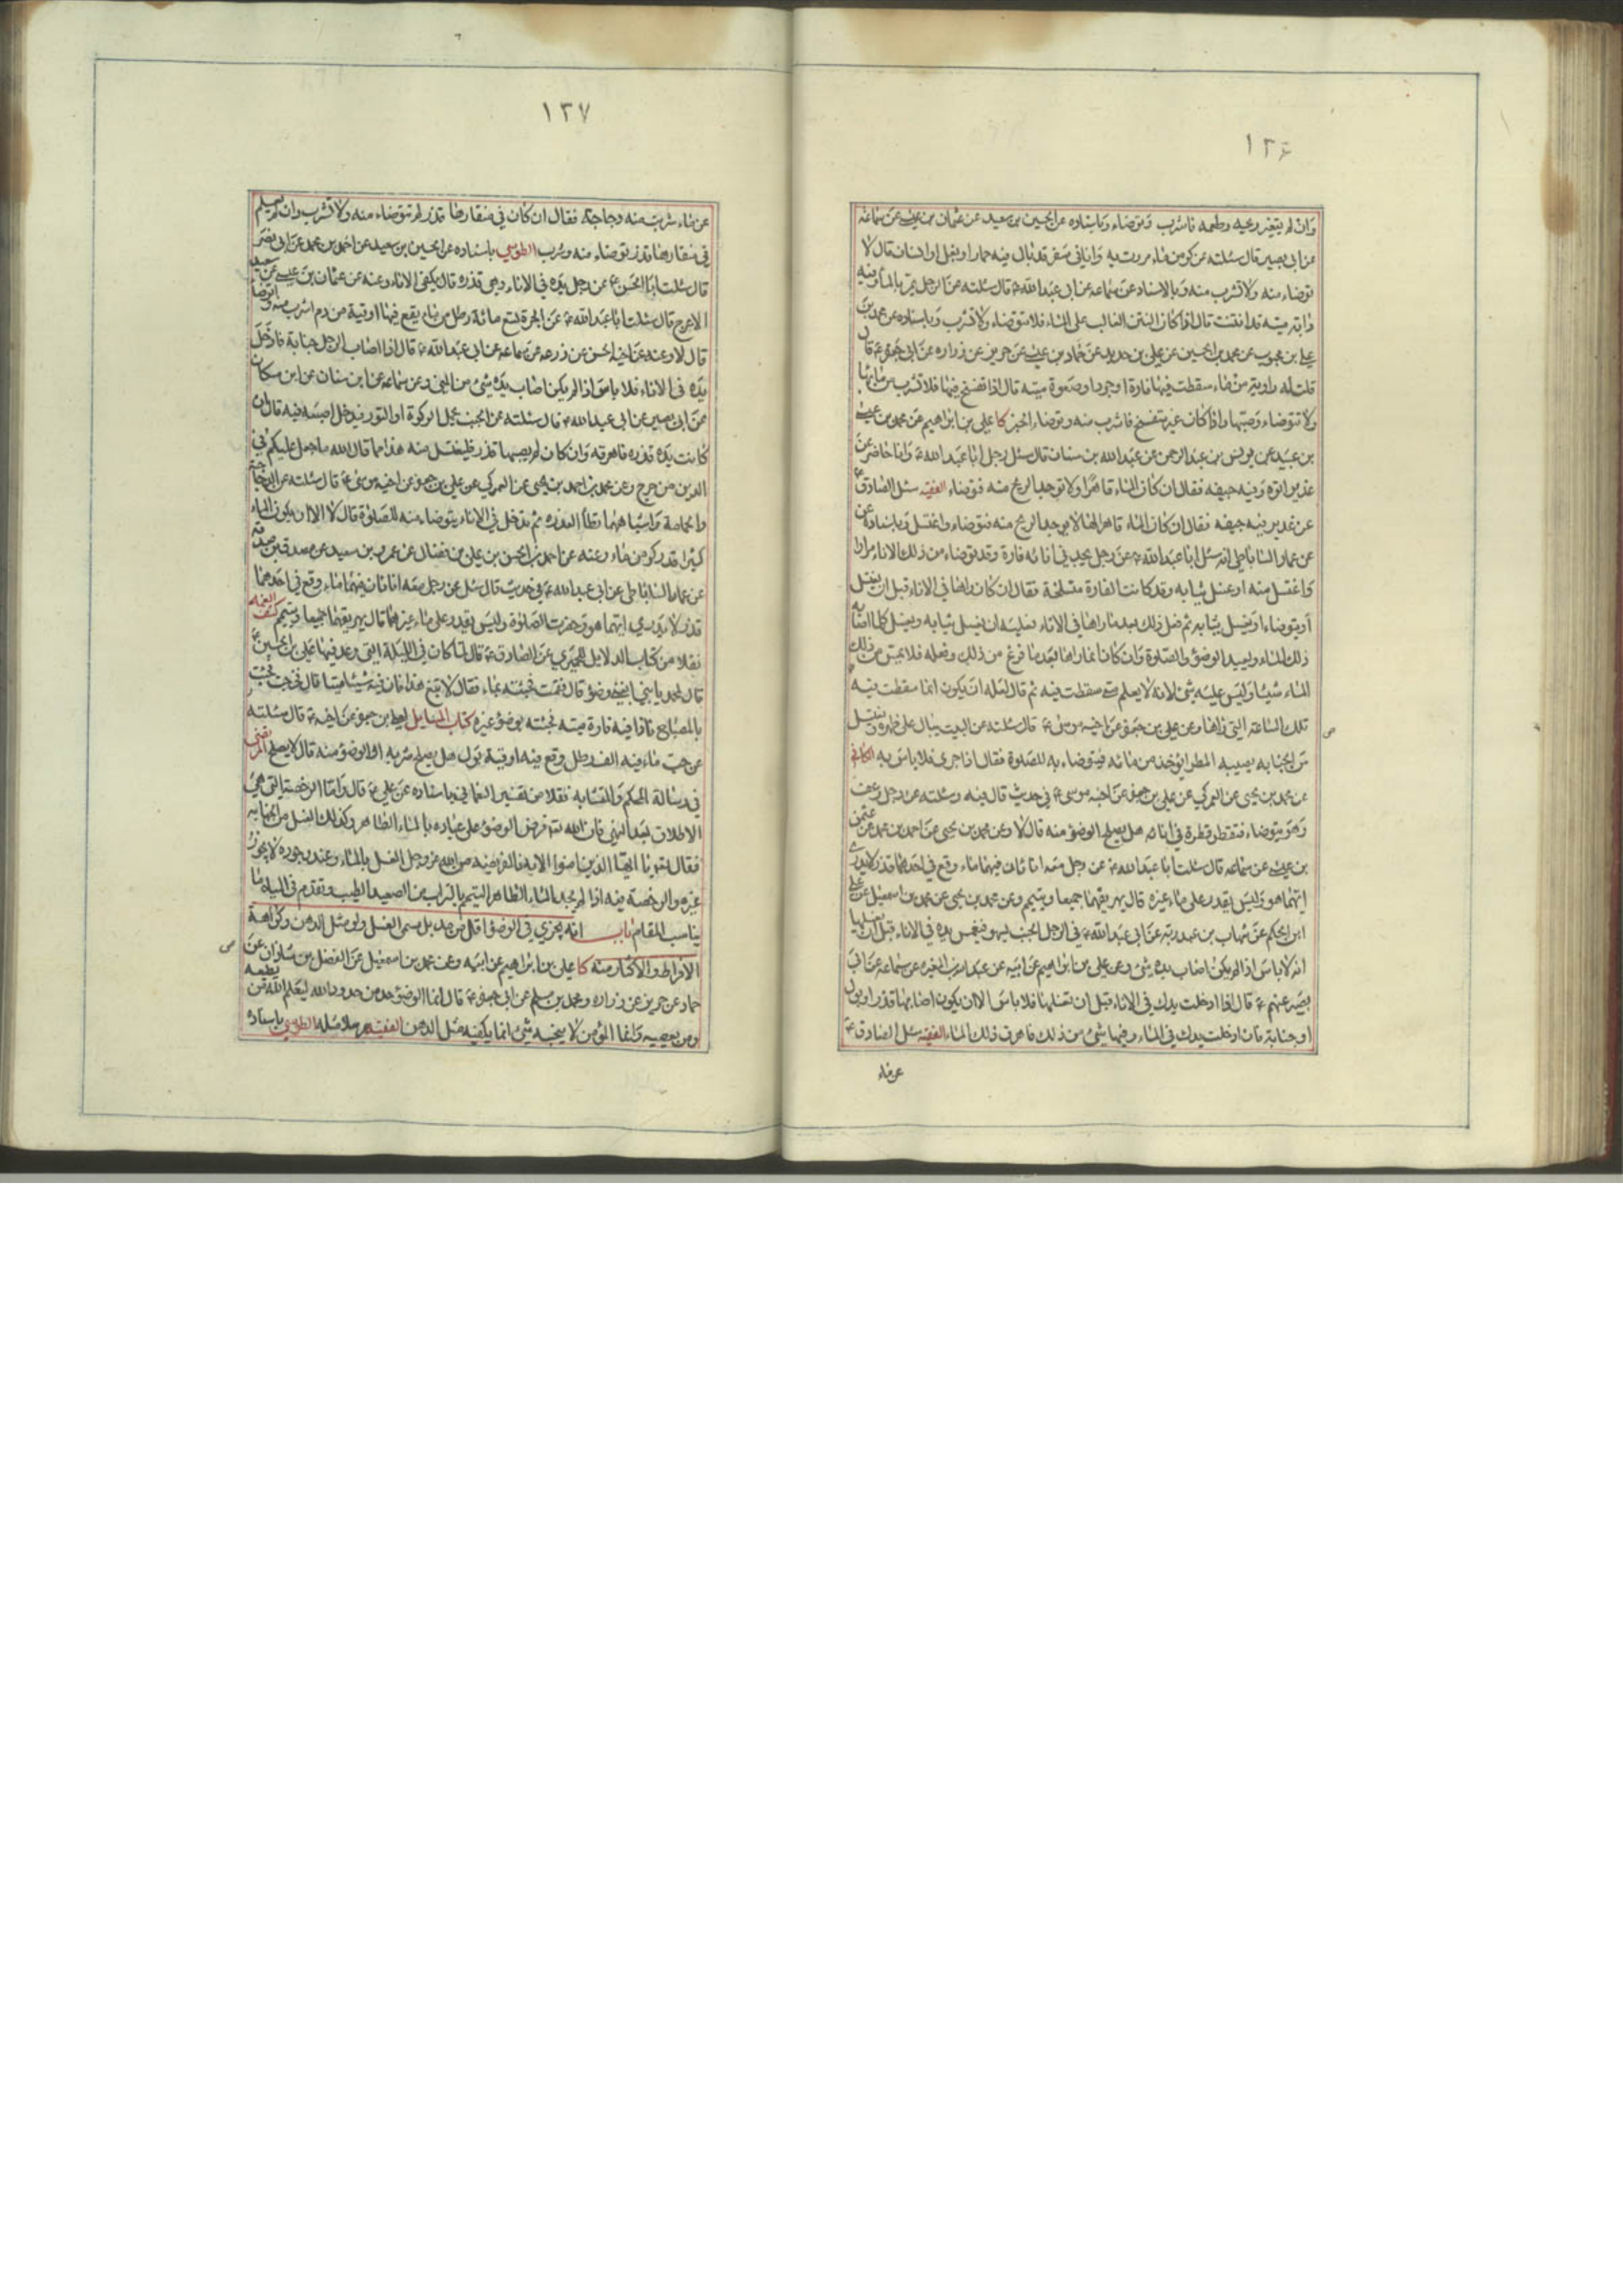 ١٢٦
وان لم يتغير ريحه وطعمه فاشرب وتوضاء وباسناده عن الحسين بن سعيد عن عثمان بن عيسى عن سماعة
عن ابى بصير قال سئلته عن كر من ماء مررت به وانا في سفر قد بال فيه حمار او بغل او انسان قال لا
توضاء منه ولا تشرب منه وبالاسناد عن سماعه عن ابى عبد الله ع قال سئلته عن الرجل يمر بالماء وفيه
دابة ميته قد انتنت قال اذا كان النتن الغالب على الماء فلا تتوضاء ولا تشرب وباسناده عن محمد بن
علي بن محبوب عن محمد بن الحسين عن علي بن حديد عن حماد بن عيسى عن حريز عن زراره عن ابى جعفر ع قال
قلت له راوية من ماء سقطت فيها فارة او جرد او صعوة ميته قال اذا تفسخ فيها فلا تشرب من مائها
ولا تتوضاء وصبها واذا كان غير متفسخ فاشرب منه وتوضاء الخبر كا علي بن ابراهيم عن محمد بن عيسى
بن عبيد عن يونس بن عبد الرحمن عن عبد الله بن سنان قال سئل رجل ابا عبد الله ع وانا حاضر عن
غدير اتوه وفيه جيفه فقال ان كان الماء قاهرا ولا توجد الريح منه فتوضاء الفقيه سئل الصادق ع
عن غدير فيه جيفه فقال ان كان الماء قاهرا لها لا يوجد الريح منه فتوضاء واغتسل وباسناده عن
عن عمار الساباطي انه سئل ابا عبد الله ع عن رجل يجد في انائه فارة وقد توضاء من ذلك الاناء مرارا
واغتسل منه او غسل ثيابه وقد كانت الفارة متسلخة فقال ان كان راها في الاناء قبل ان يغتسل
او يتوضاء او يغسل ثيابه ثم فعل ذلك بعد ما راها في الاناء فعليه ان يغسل ثيابه ويغسل كلما اصابه
ذلك الماء ويعيد الوضوء والصلوة وان كان انما راها بعد ما فرغ من ذلك وفعله فلا يمس من ذلك
الماء شيئا وليس عليه شئ لانه لا يعلم متى سقطت فيه ثم قال لعله ان يكون انما سقطت فيه
تلك الساعة التي راها وعن علي بن جعفر عن اخيه موسى ع قال سئلته عن البيت يبال على ظهره ويغتسل
من الجنابه يصيبه المطر ايؤخذ من مائه فيتوضاء به للصلوة فقال اذا جرى فلا باس به الكافي
عن محمد بن يحيى عن العمركي عن علي بن جعفر عن اخيه موسى ع في حديث قال فيه وسئلته عن رجل رعف
وهو يتوضاء فتقطر قطرة في انائه هل يصلح الوضوء منه قال لا وعن محمد بن يحيى عن احمد بن محمد عن عثمن
بن عيسى عن سماعه قال سئلت ابا عبد الله ع عن رجل معه انا ئان فيهما ماء وقع في احدهما قذر لا يدرى
ايهما هو وليس يقدر على ماء غيره قال يهريقهما جميعا ويتيمم وعن محمد بن يحيى عن محمد بن اسمعيل عن على
ابن الحكم عن شهاب بن عبد ربه عن ابى عبد الله ع في الرجل الجنب يسهو فيغمس يده في الاناء قبل ان يغسلها
انه لا باس اذا لم يكن اصاب يده شئ وعن علي بن ابراهيم عن ابيه عن عبد الله بن المغيره عن سماعة عن ابى
بصير عنهم ع قال اذا ادخلت يدك في الاناء قبل ان تغسلها فلا باس الا ان يكون اصابها قذر او بول
او جنابة فان ادخلت يدك في الماء وفيها شئ من ذلك فاهرق ذلك الماء الفقيه سئل الصادق ع
عن ماء
١٢٧
عن ماء شربت منه دجاجة فقال ان كان في منقارها قذر لم تتوضاء منه ولا تشرب وان لم يعلم
في منقارها قذر توضاء منه وشرب الطوسي باسناده عن الحسين بن سعيد عن احمد بن محمد بن ابى نصر
قال سئلت ابا الحسن ع عن رجل يده في الاناء وهي قذره قال يكفئ الاناء وعنه عن عثمان بن عيسى عن سعيد
الاعرج قال سئلت ابا عبد الله ع عن الجرة تسع مائة رطل من ماء يقع فيها اوقية من دم اشرب منه واتوضا
قال لا وعنه عن اخيه الحسن عن زرعه عن سماعه عن ابى عبد الله ع قال اذا اصاب الرجل جنابة فادخل
يده في الاناء فلا باس اذا لم يكن اصاب يده شئ من المني وعن سماعه عن ابن سنان عن ابن مسكان
عن ابى بصير عن ابى عبد الله ع قال سئلته عن الجنب يحمل الركوة او التور فيدخل اصبعه فيه قال ان
كانت يده قذره فاهرقه وان كان لم يصبها قذر فليغتسل منه هذا مما قال الله ما جعل عليكم في
الدين من حرج وعن محمد بن احمد بن يحيى عن العمركي عن علي بن جعفر عن اخيه موسى ع قال سئلته عن الدجاجة
والحمامة واشباههما تطأ العذره ثم تدخل في الاناء يتوضاء منه للصلوة قال لا الا ان يكون الماء
كثيرا قدر كر من ماء وعنه عن احمد بن الحسن بن علي بن فضال عن عمرو بن سعيد عن مصدق بن صدقه
عن عمار الساباطى عن ابى عبد الله ع في حديث قال سئل عن رجل معه انا ئان فيهما ماء وقع في احدهما
قذر لا يدري ايهما هو وحضرت الصلوة وليس يقدر على ماء غيرهما قال يهريقهما جميعا ويتيمم كشف الغمه
نقلا من كتاب الدلايل للحميري عن الصادق ع قال لما كان في الليلة التي وعد فيها علي بن الحسين ع
قال لمحمد يا بني ابغني وضوء قال فقمت فجئته بماء فقال لا تبغ هذا فان فيه شيئا ميتا قال فخرجت فجئت
بالمصباح فاذا فيه فارة ميته فجئته بوضوء غيره كتاب المسايل لعلي بن جعفر عن اخيه ع قال سئلته
عن حب ماء فيه الف رطل وقع فيه اوقية بول هل يصلح شربه او الوضوء منه قال لا يصلح المرتضى
في رسالة المحكم والمتشابه نقلا من تفسير النعماني باسناده عن علي ع قال واما الرخصة التي هي
الاطلاق بعد النهي فان الله تع فرض الوضوء على عباده بالماء الطاهر وكذلك الغسل من الجنابه
فقال تع يا ايها الذين امنوا الايه فالفريضه من الله عز وجل الغسل بالماء وعند وجوده لا يجوز
غيره والرخصة فيه اذا لم يجد الماء الطاهر التيمم بالتراب من الصعيد الطيب وتقدم في المياه ما
يناسب المقام باب انه يجزي في الوضوء اقل من مد بل مسمى الغسل ولو مثل الدهن وكراهة
الافراط والاكثار منه كا علي بن ابراهيم عن ابيه وعن محمد بن اسمعيل عن الفضل بن شاذان عن
حماد عن حريز عن زراره ومحمد بن مسلم عن ابى جعفر ع قال انما الوضوء حد من حدود الله ليعلم الله من يطيعه
ومن يعصيه وانما المؤمن لا ينجسه شئ انما يكفيه مثل الدهن الفقيه مرسلا مثله الطوسي باسناده